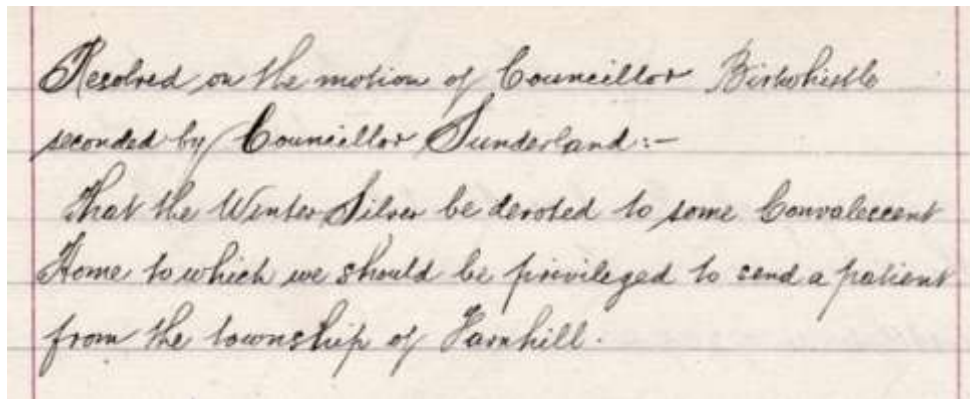 Resolved on the motion of Councillor Birtwhistle
seconded by Councillor Sunderland:-
That the Winter Silver be devoted to some Convalescent
Home to which we should be privileged to send a patient
from the township of Farnhill.